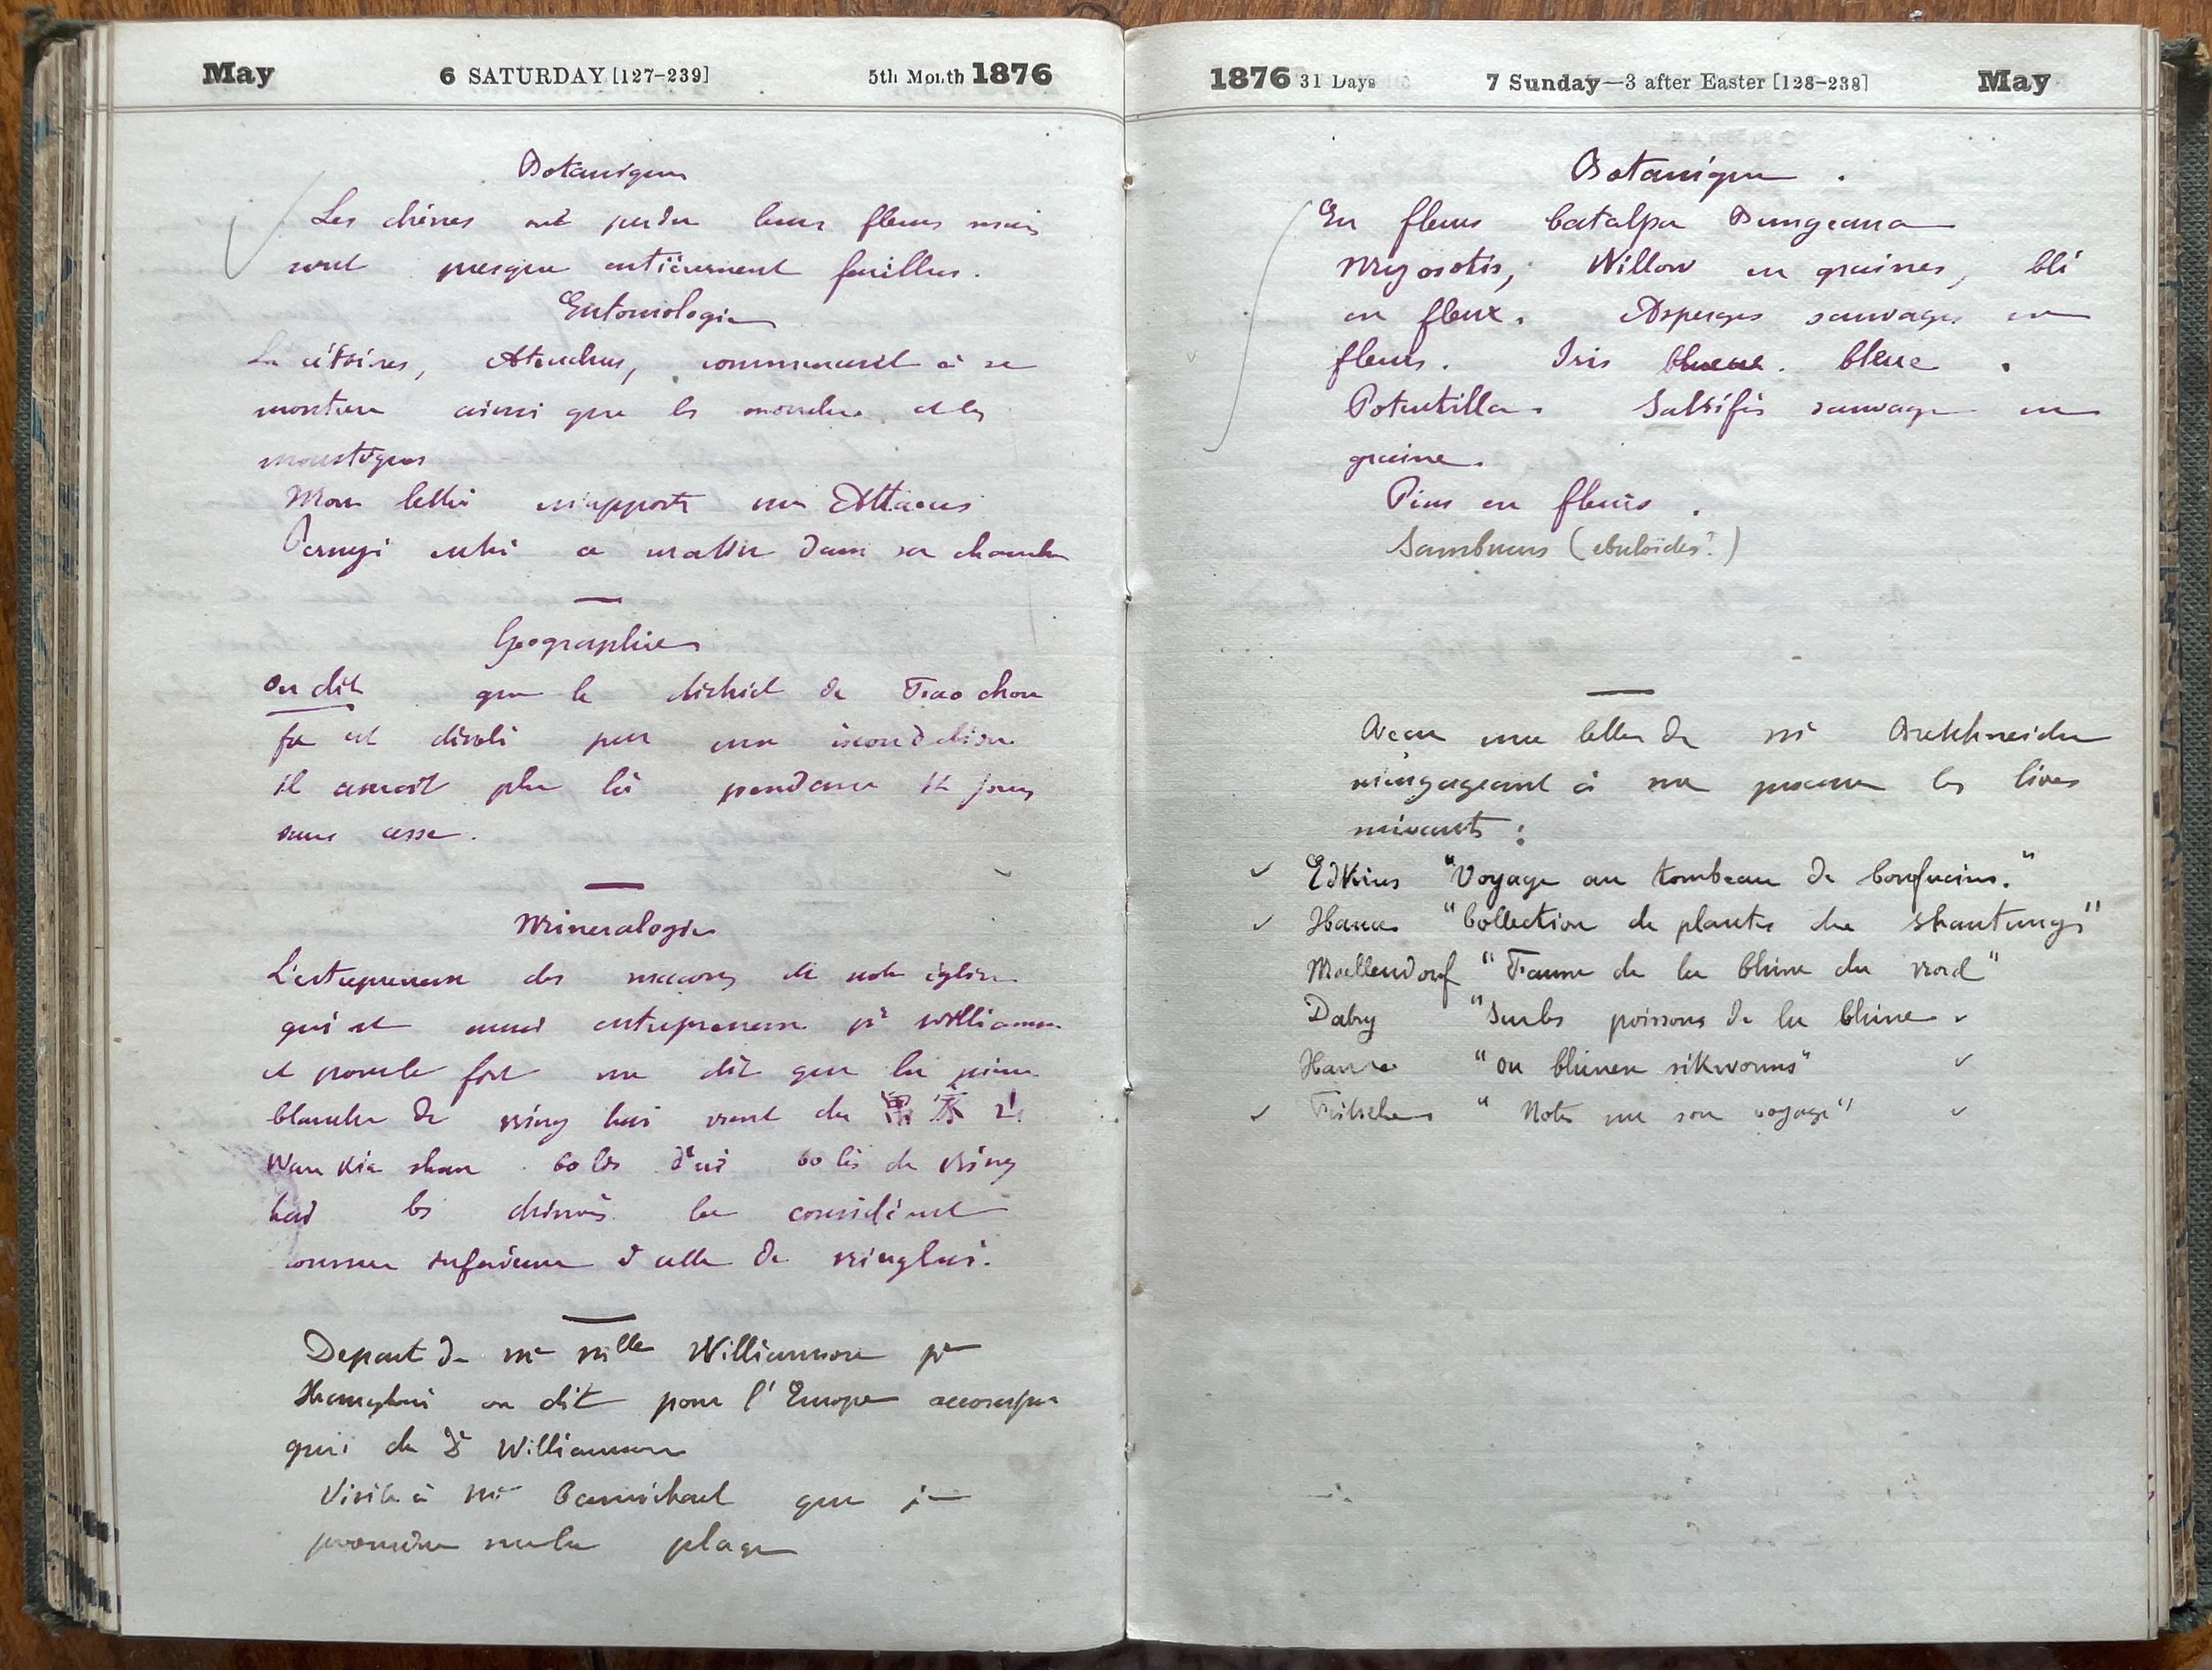 May 6 SATURDAY [127-239] 5th Month 1876
Botanique
Les chênes ont perdu leurs fleurs mais
sont presque entièrement feuillus.
Entomologie
Les cétoines, Ateuchus, commencent à se
montrer ainsi que les mouches et les
moustiques
Mon lettré m'apporte un Attacus
Pernyi entré ce matin dans sa chambre
Geographie
On dit que le district de Tsao chou
fu est désolé par une inondation
il aurait plu là pendant 14 jours
sans cesse.
Mineralogie
L'entrepreneur des maçons de notre église
qui est aussi entrepreneur pr Williamson
et parole fort me dit que la pierre
blanche de ning hai vient du
Wan Kia shan 60 lis d'ici 60 lis de Ning
hai les chinois la considèrent
comme inférieure à celle de ninghai.
Depart de Mr Mlle Williamson pr
Shanghai on dit pour l'Europe accompa
gnés du Dr Williamson
Visite à Mr Carmichael que je
promène sur la plage
1876 31 Days 7 Sunday—3 after Easter [128-238] May
Botanique.
En fleurs Catalpa Bungeana
Myosotis, Willow en graines, blé
en fleur. Asperges sauvages en
fleurs. Iris bleue.
Potentilla. Salsifis sauvage en
graine.
Pins en fleurs.
Sambucus (ebuloïdes?)
Reçu une lettre de Mr Bretschneider
m'engageant à me procurer les livres
suivants :
Edkins "Voyage au tombeau de Confucius."
Hance "Collection de plantes du Shantung"
Moellendorf "Faune de la Chine du nord"
Dabry "Sur les poissons de la Chine
Hance "on Chinese silkworms"
Fritsche "Notes sur son voyage"